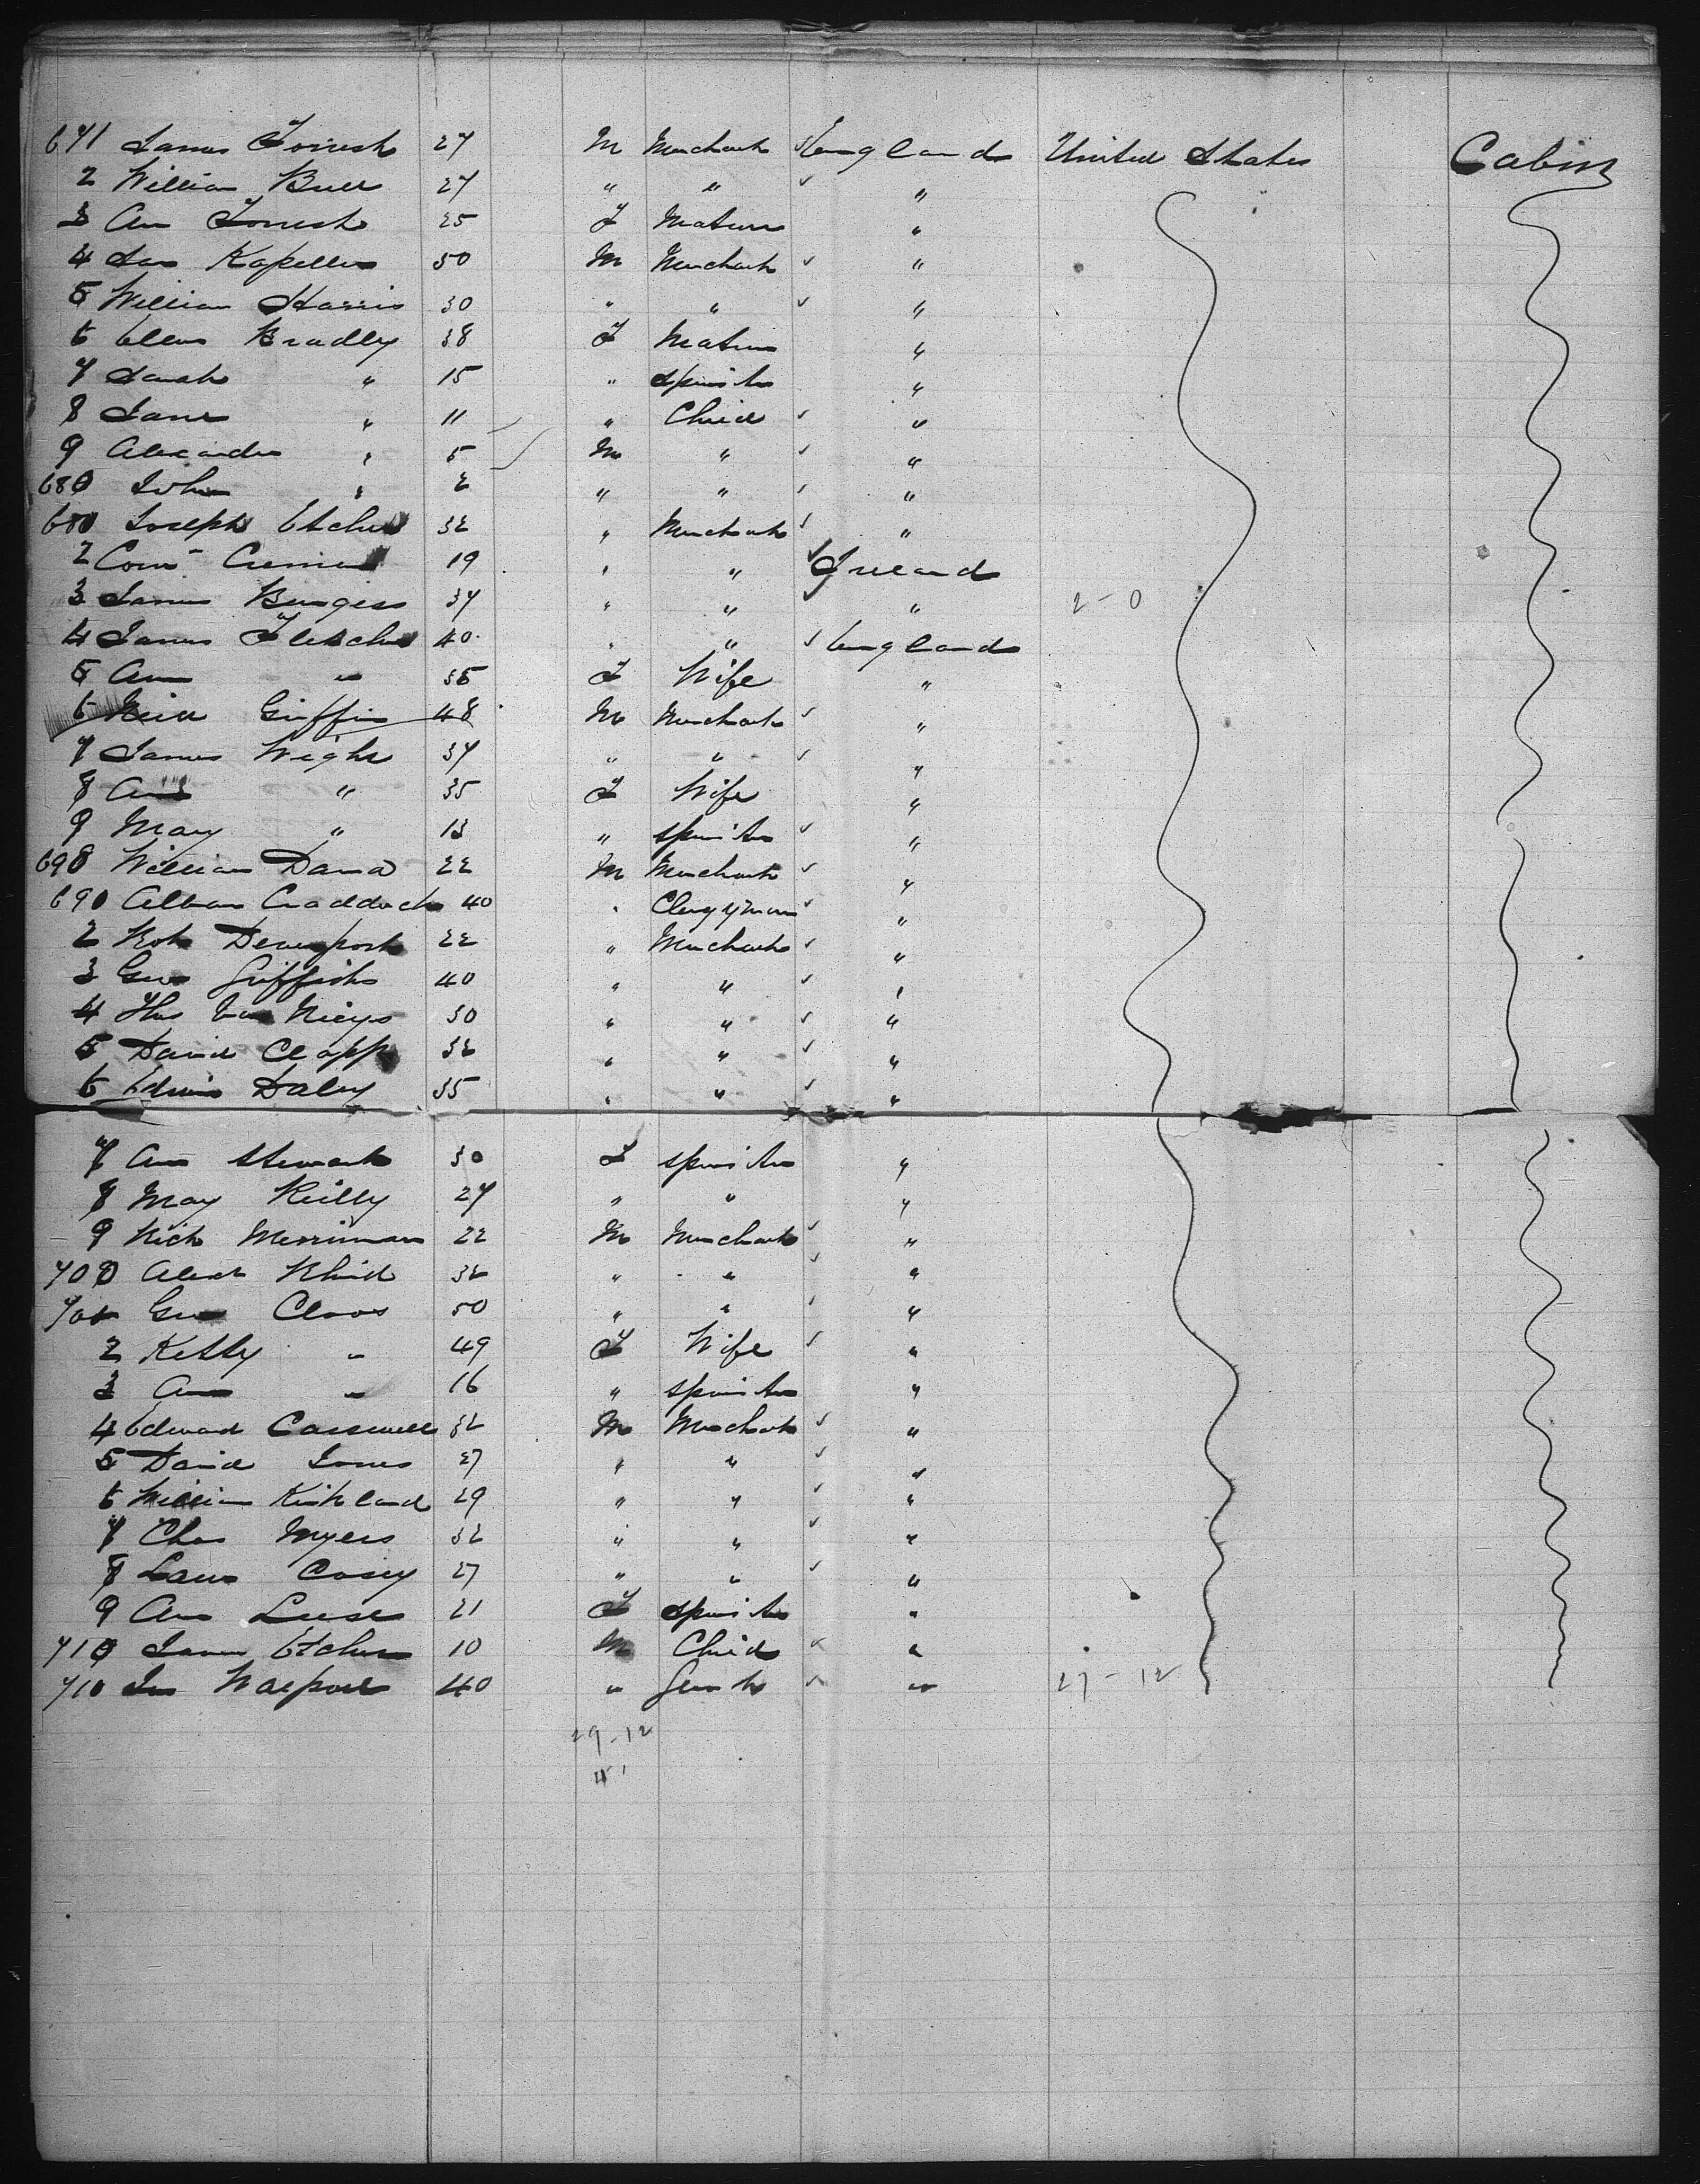 671 James Forrest 27 M Merchant England United States Cabin
2 William Bull 27 " " "
3 Ann Forrest 25 F Matron "
4 Sam Kapeller 50 M Merchant "
5 William Harris 30 " " "
6 Ellen Bradley 38 F Matron "
7 Sarah " 15 " Spinster "
8 Jane " 11 " Child "
9 Alexander " 5 M " "
680 John " 2 " " "
680 Joseph Etcher 32 " Merchant "
2 19 " " Ireland
3 James Burgess 37 " " " 2-0
4 James Fletcher 40 " " England
5 Ann " 35 F Wife "
6 Griffin 48 M Merchant "
7 James Wight 37 " " "
8 Ann " 35 F Wife "
9 Mary " 13 " Spinster "
690 William David 22 M Merchant "
690 Alban Craddock 40 " Clergyman "
2 Rob Davenport 22 " Merchant "
3 Geo Griffith 40 " " "
4 Thos 30 " " "
5 David Clapp 32 " " "
6 Edwin Daley 35 " " "
7 Ann Stewart 30 F Spinster "
8 May Reilly 27 " " "
9 Rich Merriman 22 M Merchant "
700 Alex 32 " " "
700 Geo Cloos 50 " " "
2 Kitty " 49 F Wife "
3 Ann " 16 " Spinster "
4 Edward Casswell 32 M Merchant "
5 David Jones 27 " " "
6 William Kirkland 29 " " "
7 Chas Myers 32 " " "
8 Lawe Casey 27 " " "
9 Ann 21 F Spinster "
710 James Etcher 10 M Child "
710 Jas Walpole 40 " Gent " 27-12
29-12